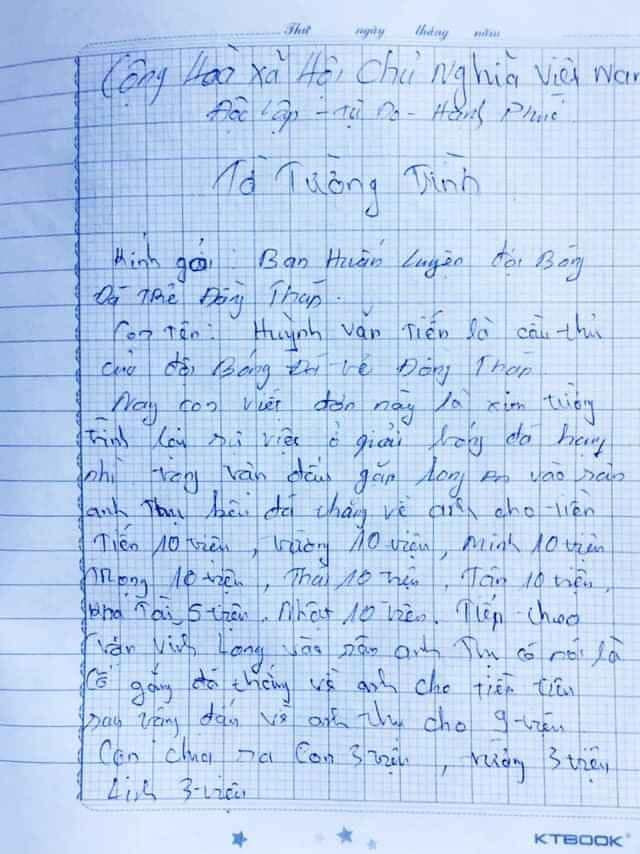 Thứ ngày tháng năm
Cộng Hoà xã Hội Chủ Nghĩa Việt Nam
Độc Lập - Tự Do - Hành Phúc
Tờ Tường Trình
Kính gởi: Ban Huấn Luyện đội Bóng
Đá Trẻ Đồng Tháp.
Con Tên: Huỳnh văn Tiến là cầu thủ
của đội Bóng Đá vẻ Đồng Tháp
Nay con viết đơn này là xin tường
trình lại sự việc ở giải bóng đá hạng
nhì trong vàn đấu gặp long An vào sân
anh Thụ biểu đá thắng về anh cho tiền
Tiến 10 triệu, vương 10 triệu, Minh 10 triệu
Trọng 10 triệu, Thái 10 triệu, Tân 10 triệu,
Tài 5 triệu, Nhật 10 triệu. Tiếp theo
trận Vĩnh Long vào sân anh Thụ có nói là
Cố gắng đá thắng về anh cho tiền tiêu
sau vòng đấu về anh thụ cho 9 triệu
Con chia ra Con 3 triệu, vương 3 triệu
Linh 3 triệu
KTBOOK